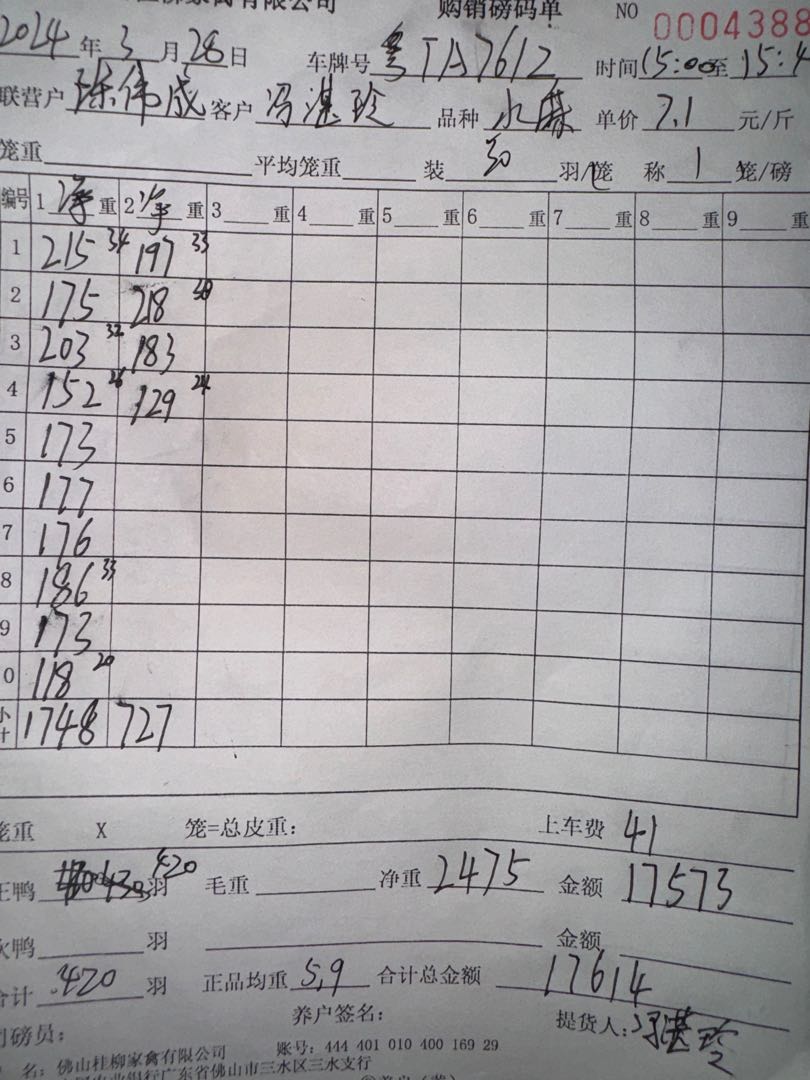 桂柳家禽有限公司 购销磅码单 NO 0004388
2024年3月28日 车牌号 粤TA7612 时间15:00至15:4
联营户 伟成 客户 冯湛珍 品种 水 单价 7.1 元/斤
笼重 平均笼重 装 30 羽/笼 称 1 笼/磅
编号 1 净重 2 净重 3 重 4 重 5 重 6 重 7 重 8 重 9 重
1 215 34 197 33
2 175 218 38
3 203 32 183
4 152 26 129 24
5 173
6 177
7 176
8 186 33
9 173
0 118 20
小计 1748 727
笼重 X 笼=总皮重: 上车费 41
正鸭 420 羽 毛重 净重 2475 金额 17573
次鸭 羽 金额
合计 420 羽 正品均重 5.9 合计总金额 17614
养户签名: 提货人:冯湛珍
司磅员:
名: 佛山桂柳家禽有限公司 账号: 444 401 010 400 169 29
农业银行广东省佛山市三水区三水支行